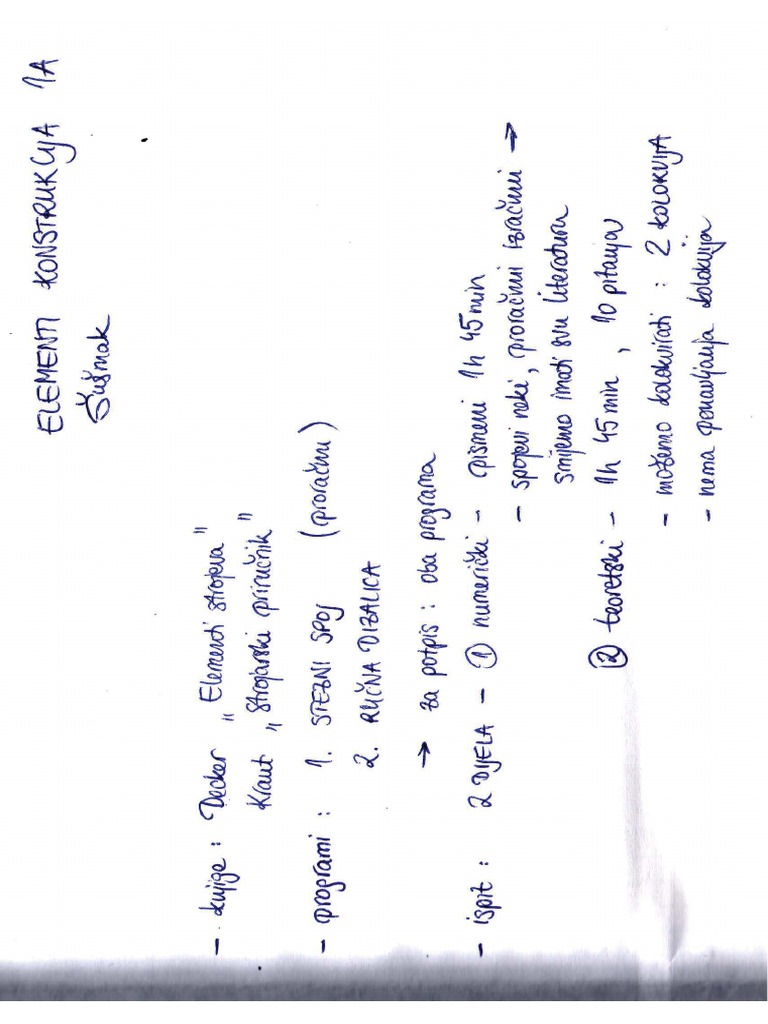 ELEMENTI KONSTRUKCIJA 1A
Šušmak
- knjige : Decker „Elementi strojeva"
Kraut „Strojarski priručnik"
- programi : 1. STEZNI SPOJ (proračun)
2. RUČNA DIZALICA
→ za potpis : oba programa
- ispit : 2 DIJELA - ① numerički - pismeni 1h 45min
- spojevi neki, proračuni izračuni →
smijemo imati svu literaturu
② teoretski - 1h 45 min, 10 pitanja
- možemo kolokvirati : 2 KOLOKVIJA
- nema ponavljanja kolokvija